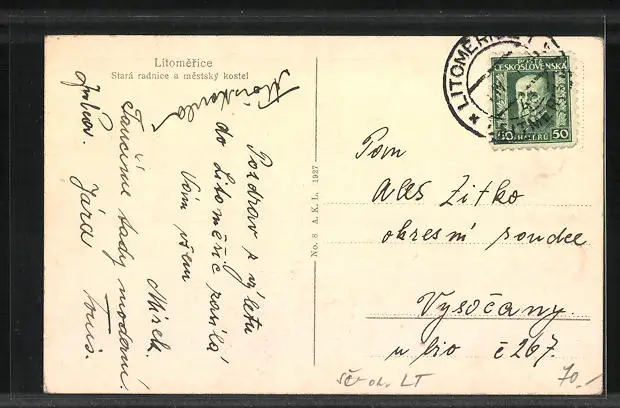 Litoměřice
Stará radnice a městský kostel
Pozdrav z výletu
do Litoměřic posílá
Vám všem
Mirek.
Tančíme tady moderní
Jára
No. 8 A. K. L. 1927
LITOMĚŘICE
POŠTA
ČESKOSLOVENSKÁ
50 HALÉŘŮ 50
Pan
Aleš Zitko
okresní soudce
Vysočany
u čp č 267.
LT
70.-